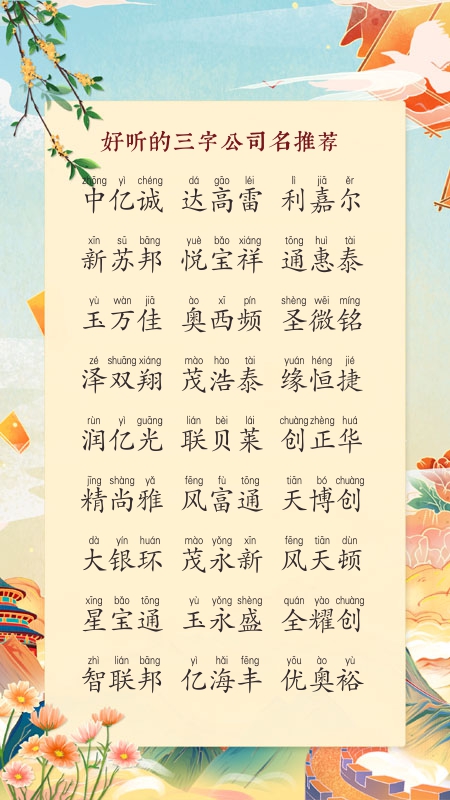 好听的三字公司名推荐
zhōng yì chéng dá gāo léi lì jiā ěr
中亿诚 达高雷 利嘉尔
xīn sū bāng yuè bǎo xiáng tōng huì tài
新苏邦 悦宝祥 通惠泰
yù wàn jiā ào xī pín shèng wēi míng
玉万佳 奥西频 圣微铭
zé shuāng xiáng mào hào tài yuán héng jié
泽双翔 茂浩泰 缘恒捷
rùn yì guāng lián bèi lái chuàng zhèng huá
润亿光 联贝莱 创正华
jīng shàng yǎ fēng fù tōng tiān bó chuàng
精尚雅 风富通 天博创
dà yín huán mào yǒng xīn fēng tiān dùn
大银环 茂永新 风天顿
xīng bǎo tōng yù yǒng shèng quán yào chuàng
星宝通 玉永盛 全耀创
zhì lián bāng yì hǎi fēng yōu ào yù
智联邦 亿海丰 优奥裕